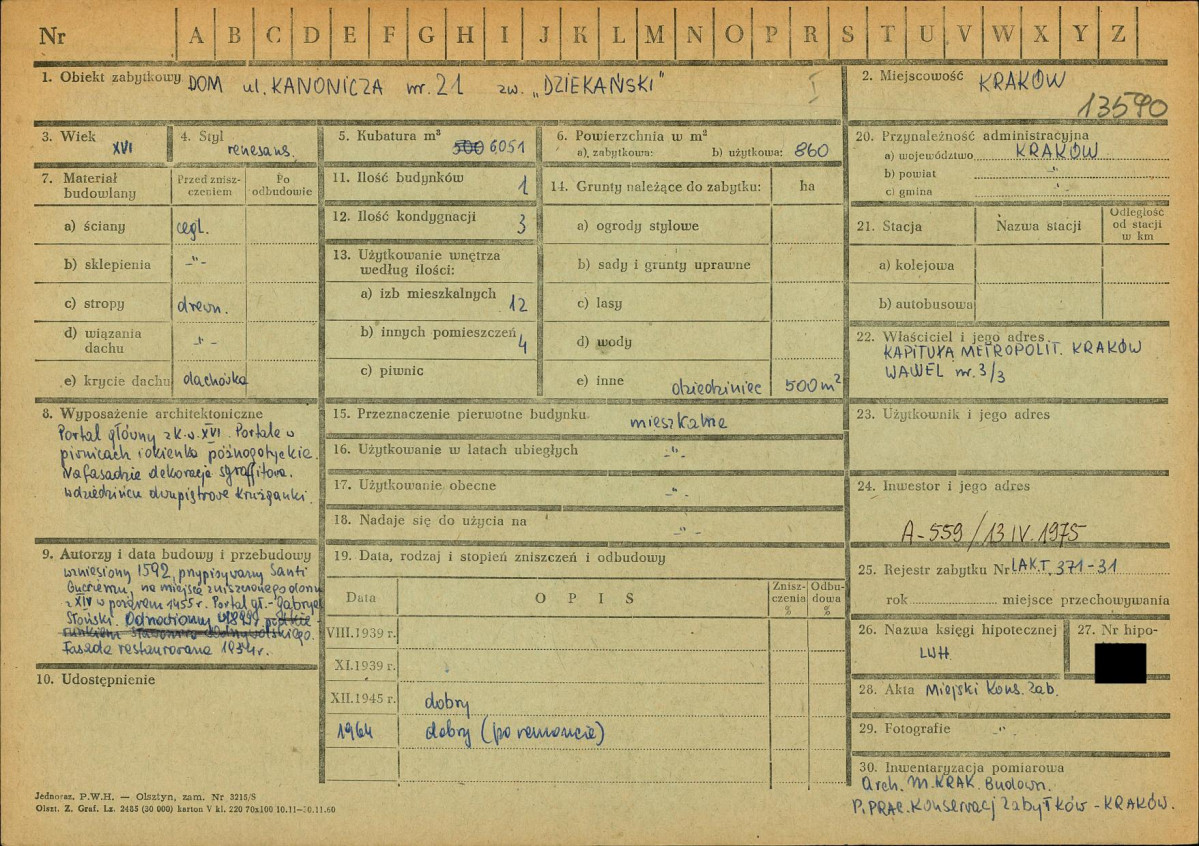 Nr A B C D E F G H I J K L M N O P R S T U V W X Y Z
1. Obiekt zabytkowy DOM ul. KANONICZA nr. 21 zw. „DZIEKAŃSKI" I
2. Miejscowość KRAKÓW
13590
3. Wiek XVI
4. Styl renesans.
5. Kubatura m³ 500 6051
6. Powierzchnia w m²
a). zabytkowa: b) użytkowa: 860
20. Przynależność administracyjna
a) województwo KRAKÓW
b) powiat -"-
c) gmina -"-
7. Materiał budowlany
Przed znisz-
czeniem
Po
odbudowie
a) ściany cegl.
b) sklepienia -"-
c) stropy drewn.
d) wiązania
dachu -"-
e) krycie dachu dachówka
11. Ilość budynków 1
12. Ilość kondygnacji 3
13. Użytkowanie wnętrza
według ilości:
a) izb mieszkalnych 12
b) innych pomieszczeń 4
c) piwnic
14. Grunty należące do zabytku: ha
a) ogrody stylowe
b) sady i grunty uprawne
c) lasy
d) wody
e) inne dziedziniec 500 m²
21. Stacja Nazwa stacji
Odległość
od stacji
w km
a) kolejowa
b) autobusowa
22. Właściciel i jego adres
KAPITUŁA METROPOLIT. KRAKÓW
WAWEL nr. 3/3
8. Wyposażenie architektoniczne
Portal główny z k. w. XVI. Portale w
piwnicach i okienka późnogotyckie.
Na fasadzie dekoracja sgraffitowa.
W dziedzińcu dwupiętrowe krużganki.
15. Przeznaczenie pierwotne budynku mieszkalne
16. Użytkowanie w latach ubiegłych -"-
17. Użytkowanie obecne -"-
18. Nadaje się do użycia na -"-
23. Użytkownik i jego adres
24. Inwestor i jego adres
A-559/13 IV. 1975
9. Autorzy i data budowy i przebudowy
wzniesiony 1592, przypisywany Santi
Gucciemu, na miejscu zniszczonego domu
z XIV w pożarem 1455 r. Portal gł. - Gabryel
Słoński. Odnowiony
Fasada restaurowana 1934 r.
10. Udostępnienie
19. Data, rodzaj i stopień zniszczeń i odbudowy
Data O P I S
Znisz-
czenia
%
Odbu-
dowa
%
VIII.1939 r.
XI.1939 r.
XII.1945 r. dobry
1964 dobry (po remoncie)
25. Rejestr zabytku Nr LAK.T. 371-31
rok miejsce przechowywania
26. Nazwa księgi hipotecznej
LWH.
27. Nr hipo-
28. Akta Miejski Kons. Zab.
29. Fotografie -"-
30. Inwentaryzacja pomiarowa
Arch. M. KRAK. Budown.
P. PRAC. Konserwacj Zabytków - KRAKÓW.
Jednoraz. P.W.H. — Olsztyn, zam. Nr 3215/S
Olszt. Z. Graf. Lz. 2485 (30 000) karton V kl. 220 70x100 10.11-30.11.60